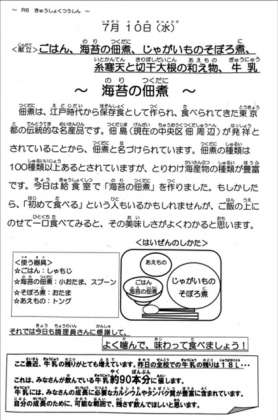 ～ R6 きゅうしょくつうしん ～
7月 10日 (水)
<献立>ごはん、海苔の佃煮、じゃがいものそぼろ煮、
糸寒天と切干大根の和え物、牛乳
～ 海苔の佃煮 ～
佃煮は、江戸時代から保存食として作られ、食べられてきた東京
都の伝統的な名産品です。佃島(現在の中央区佃周辺)が発祥と
されていることから、佃煮と名づけられています。佃煮の種類は
100種類以上あるとされていますが、とりわけ海産物の種類が豊富
です。今日は給食室で「海苔の佃煮」を作りました。もしかした
ら、「初めて食べる」という人もいるかもしれませんが、ご飯の上に
のせて一口食べてみると、その美味しさがよくわかると思います。
<はいぜんのしかた>
<使う器具>
☆ごはん：しゃもじ
☆海苔の佃煮：小おたま、スプーン
☆そぼろ煮：おたま
☆あえもの：トング
あえもの
ごはん
海苔の佃煮
じゃがいもの
そぼろ煮
それでは今日も調理員さんに感謝して、
よく噛んで、味わって食べましょう！
ここ最近、牛乳の残りがとても増えています。昨日の全校での牛乳の残りは18L…
これは、みなさんが飲んでいる牛乳約90本分に値します。
牛乳には、みなさんの成長に必要なカルシウムやタンパク質が豊富に含まれています。
自分の成長のために、可能な範囲で、残さず飲んでほしいと思います。